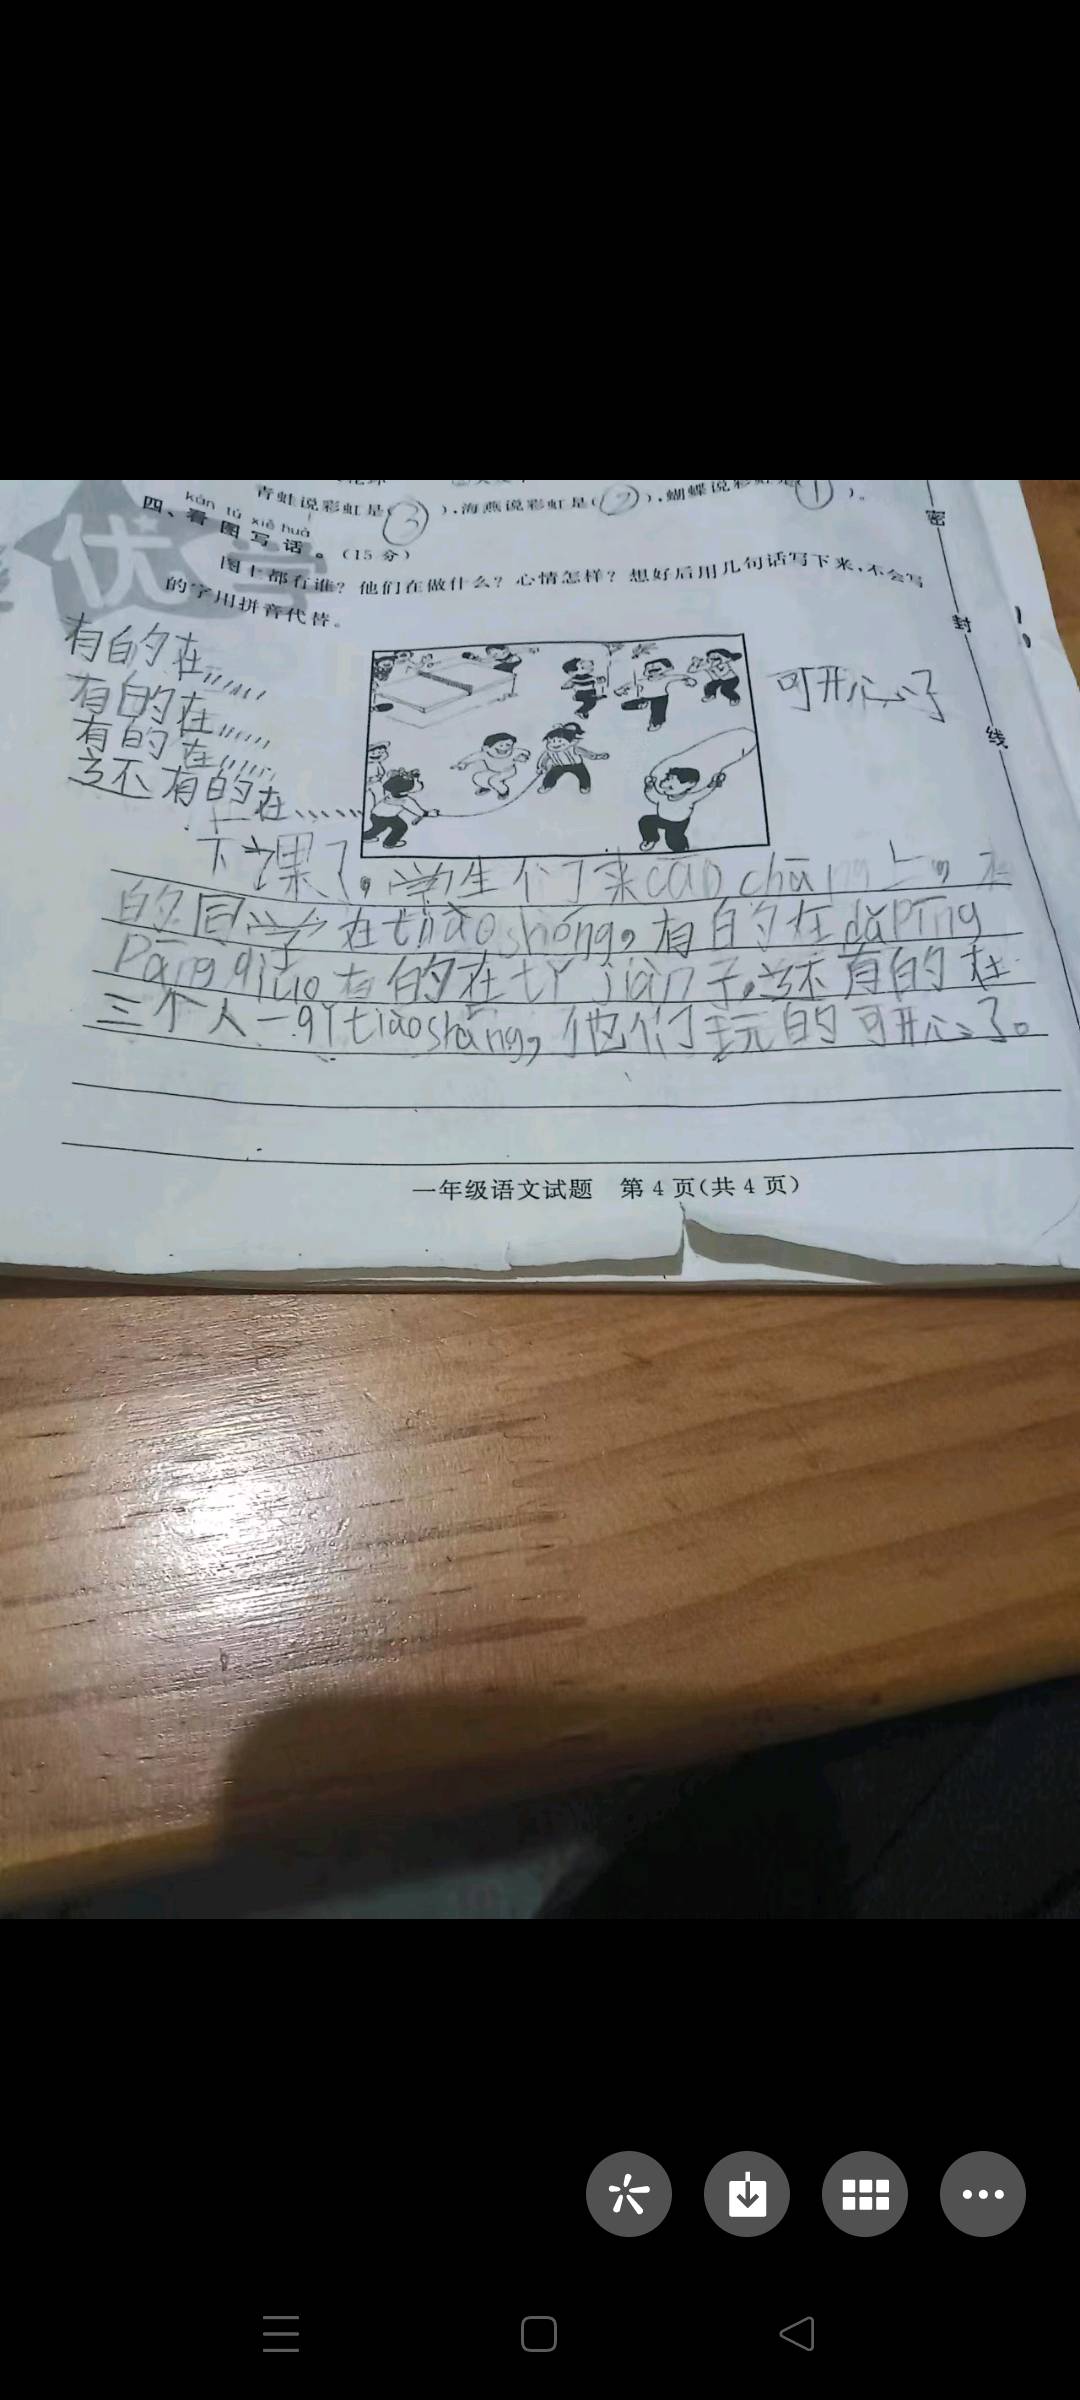 青蛙说彩虹是(3),海燕说彩虹是(2),蝴蝶说彩虹是(1)。
kàn tú xiě huà
四、看图写话。(15分)
图上都有谁?他们在做什么?心情怎样?想好后用几句话写下来,不会写
的字用拼音代替。
有的在……
有的在……
有的在……
还有的在……
可开心了
下课了,学生们来cāo chǎng上,有
的同学在tiào shéng,有的在dǎ pīng
pāng qiú。有的在tī jiàn子。还有的在
三个人一qǐ tiào shéng,他们玩的可开心了。
一年级语文试题 第4页(共4页)
密
封
线
优